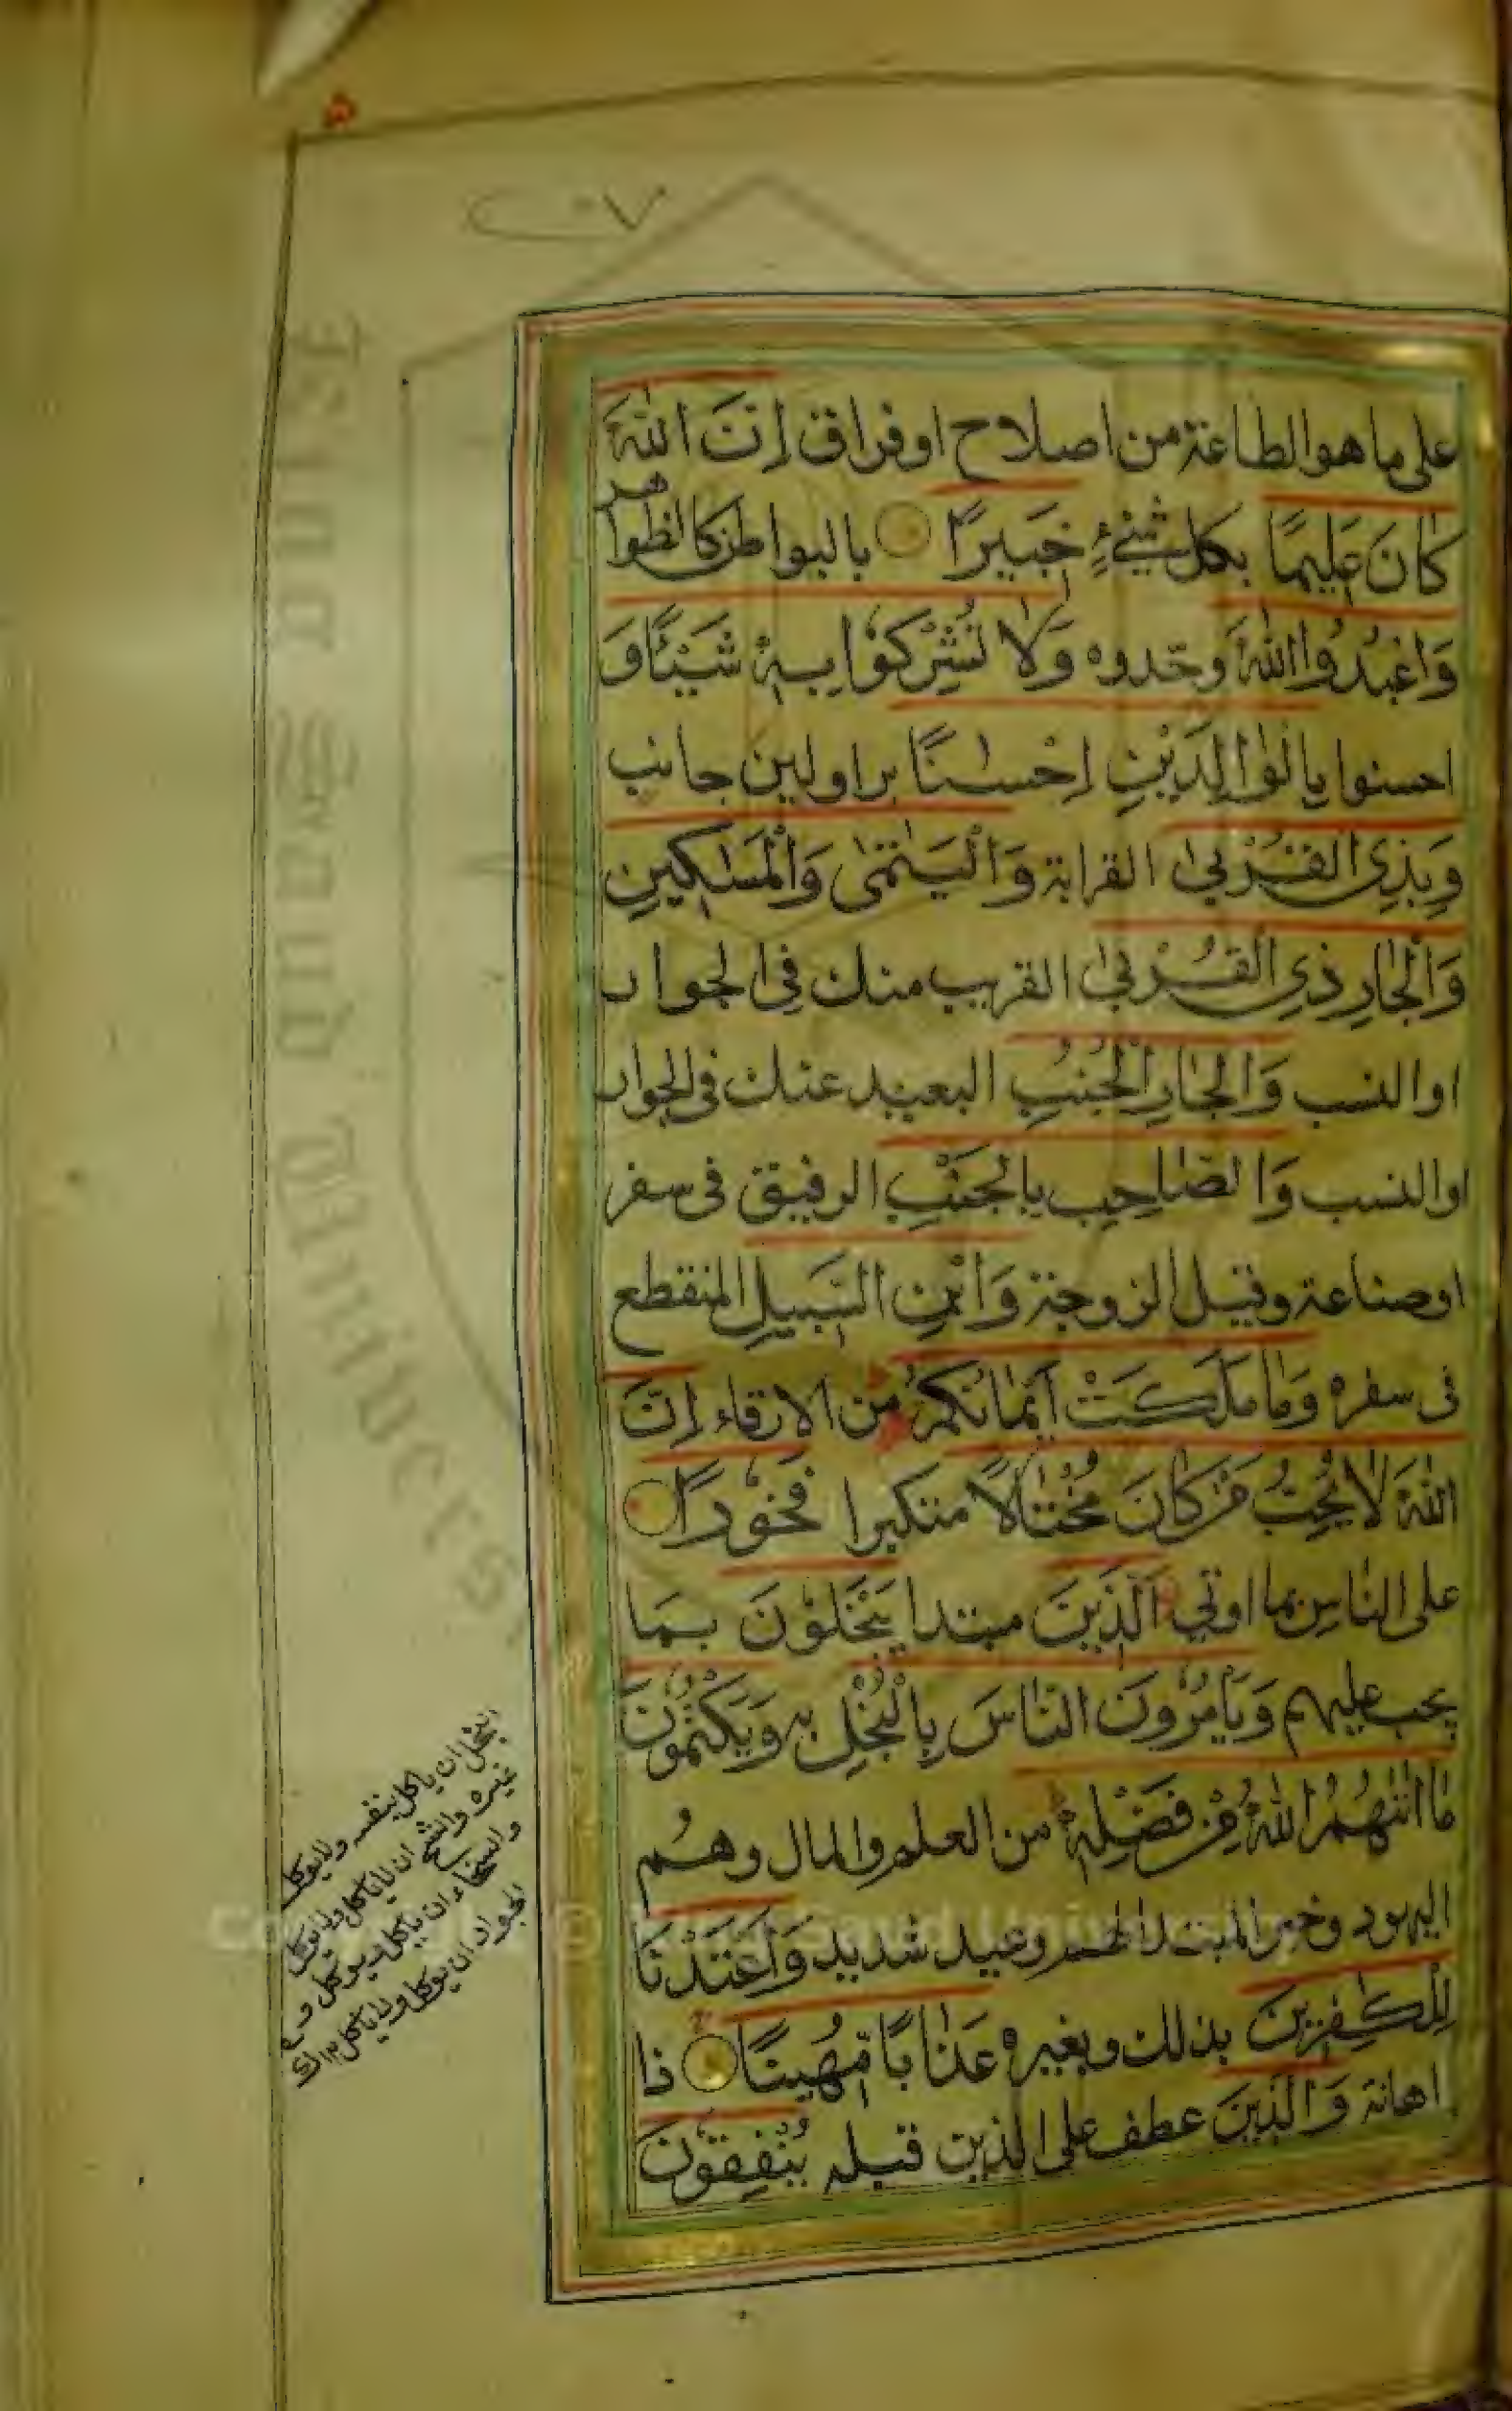 على ما هو الطاعة من اصلاح او فراق اِنَّ اللّٰهَ
كَانَ عَلِيمًا بكل شيء خَبِيرًا بالبواطن كالظواهر
وَاعْبُدُوا اللّٰهَ وحّدوه وَلَا تُشْرِكُوْا بِهٖ شَيْئًا وَ
احسنوا بِالْوَالِدَيْنِ اِحْسٰنًا برا ولين جانب
وَبِذِى الْقُرْبٰى القرابة وَالْيَتٰمٰى وَالْمَسٰكِينِ
وَالْجَارِ ذِى الْقُرْبٰى القريب منك فى الجوار
او النسب وَالْجَارِ الْجُنُبِ البعيد عنك فى الجوار
او النسب وَالصَّاحِبِ بِالْجَنْبِ الرفيق فى سفر
او صناعة وقيل الزوجة وَابْنِ السَّبِيلِ المنقطع
فى سفره وَمَا مَلَكَتْ اَيْمَانُكُمْ من الارقاء اِنَّ
اللّٰهَ لَا يُحِبُّ مَنْ كَانَ مُخْتَالًا متكبرا فَخُوْرًا
على الناس بما اوتي الَّذِينَ مبتدا يَبْخَلُوْنَ بما
يجب عليهم وَيَاْمُرُوْنَ النَّاسَ بِالْبُخْلِ به وَيَكْتُمُوْنَ
مَا اٰتٰىهُمُ اللّٰهُ مِنْ فَضْلِهٖ من العلم والمال وهُم
اليهود وخبر المبتدا لهم وعيد شديد وَاَعْتَدْنَا
لِلْكٰفِرِينَ بذلك وبغيره عَذَابًا مُّهِينًا ذا
اهانة وَالَّذِينَ عطف على الذين قبله يُنْفِقُوْنَ
البخل ان ياكل بنفسه ولا يوكل
غيره والشح ان لا ياكل ولا يوكل
والسخاء ان ياكل ويوكل و
الجود ان يوكل ولا ياكل